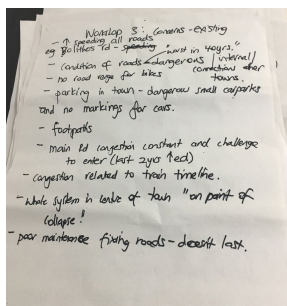 Workshop 3: Concerns - existing
- ↑ speeding all roads
eg Bolithos rd - speeding "worst in 40yrs."
- condition of roads - dangerous / internal /
connection other
towns.
- no road range for bikes
- parking in town - dangerous small carparks
and no markings for cars.
- footpaths
- main Rd congestion constant and challenge
to enter (last 2yrs ↑ed)
- congestion related to train timeline.
- whole system in centre of town "on point of
collapse!"
- poor maintenance fixing roads - doesn't last.